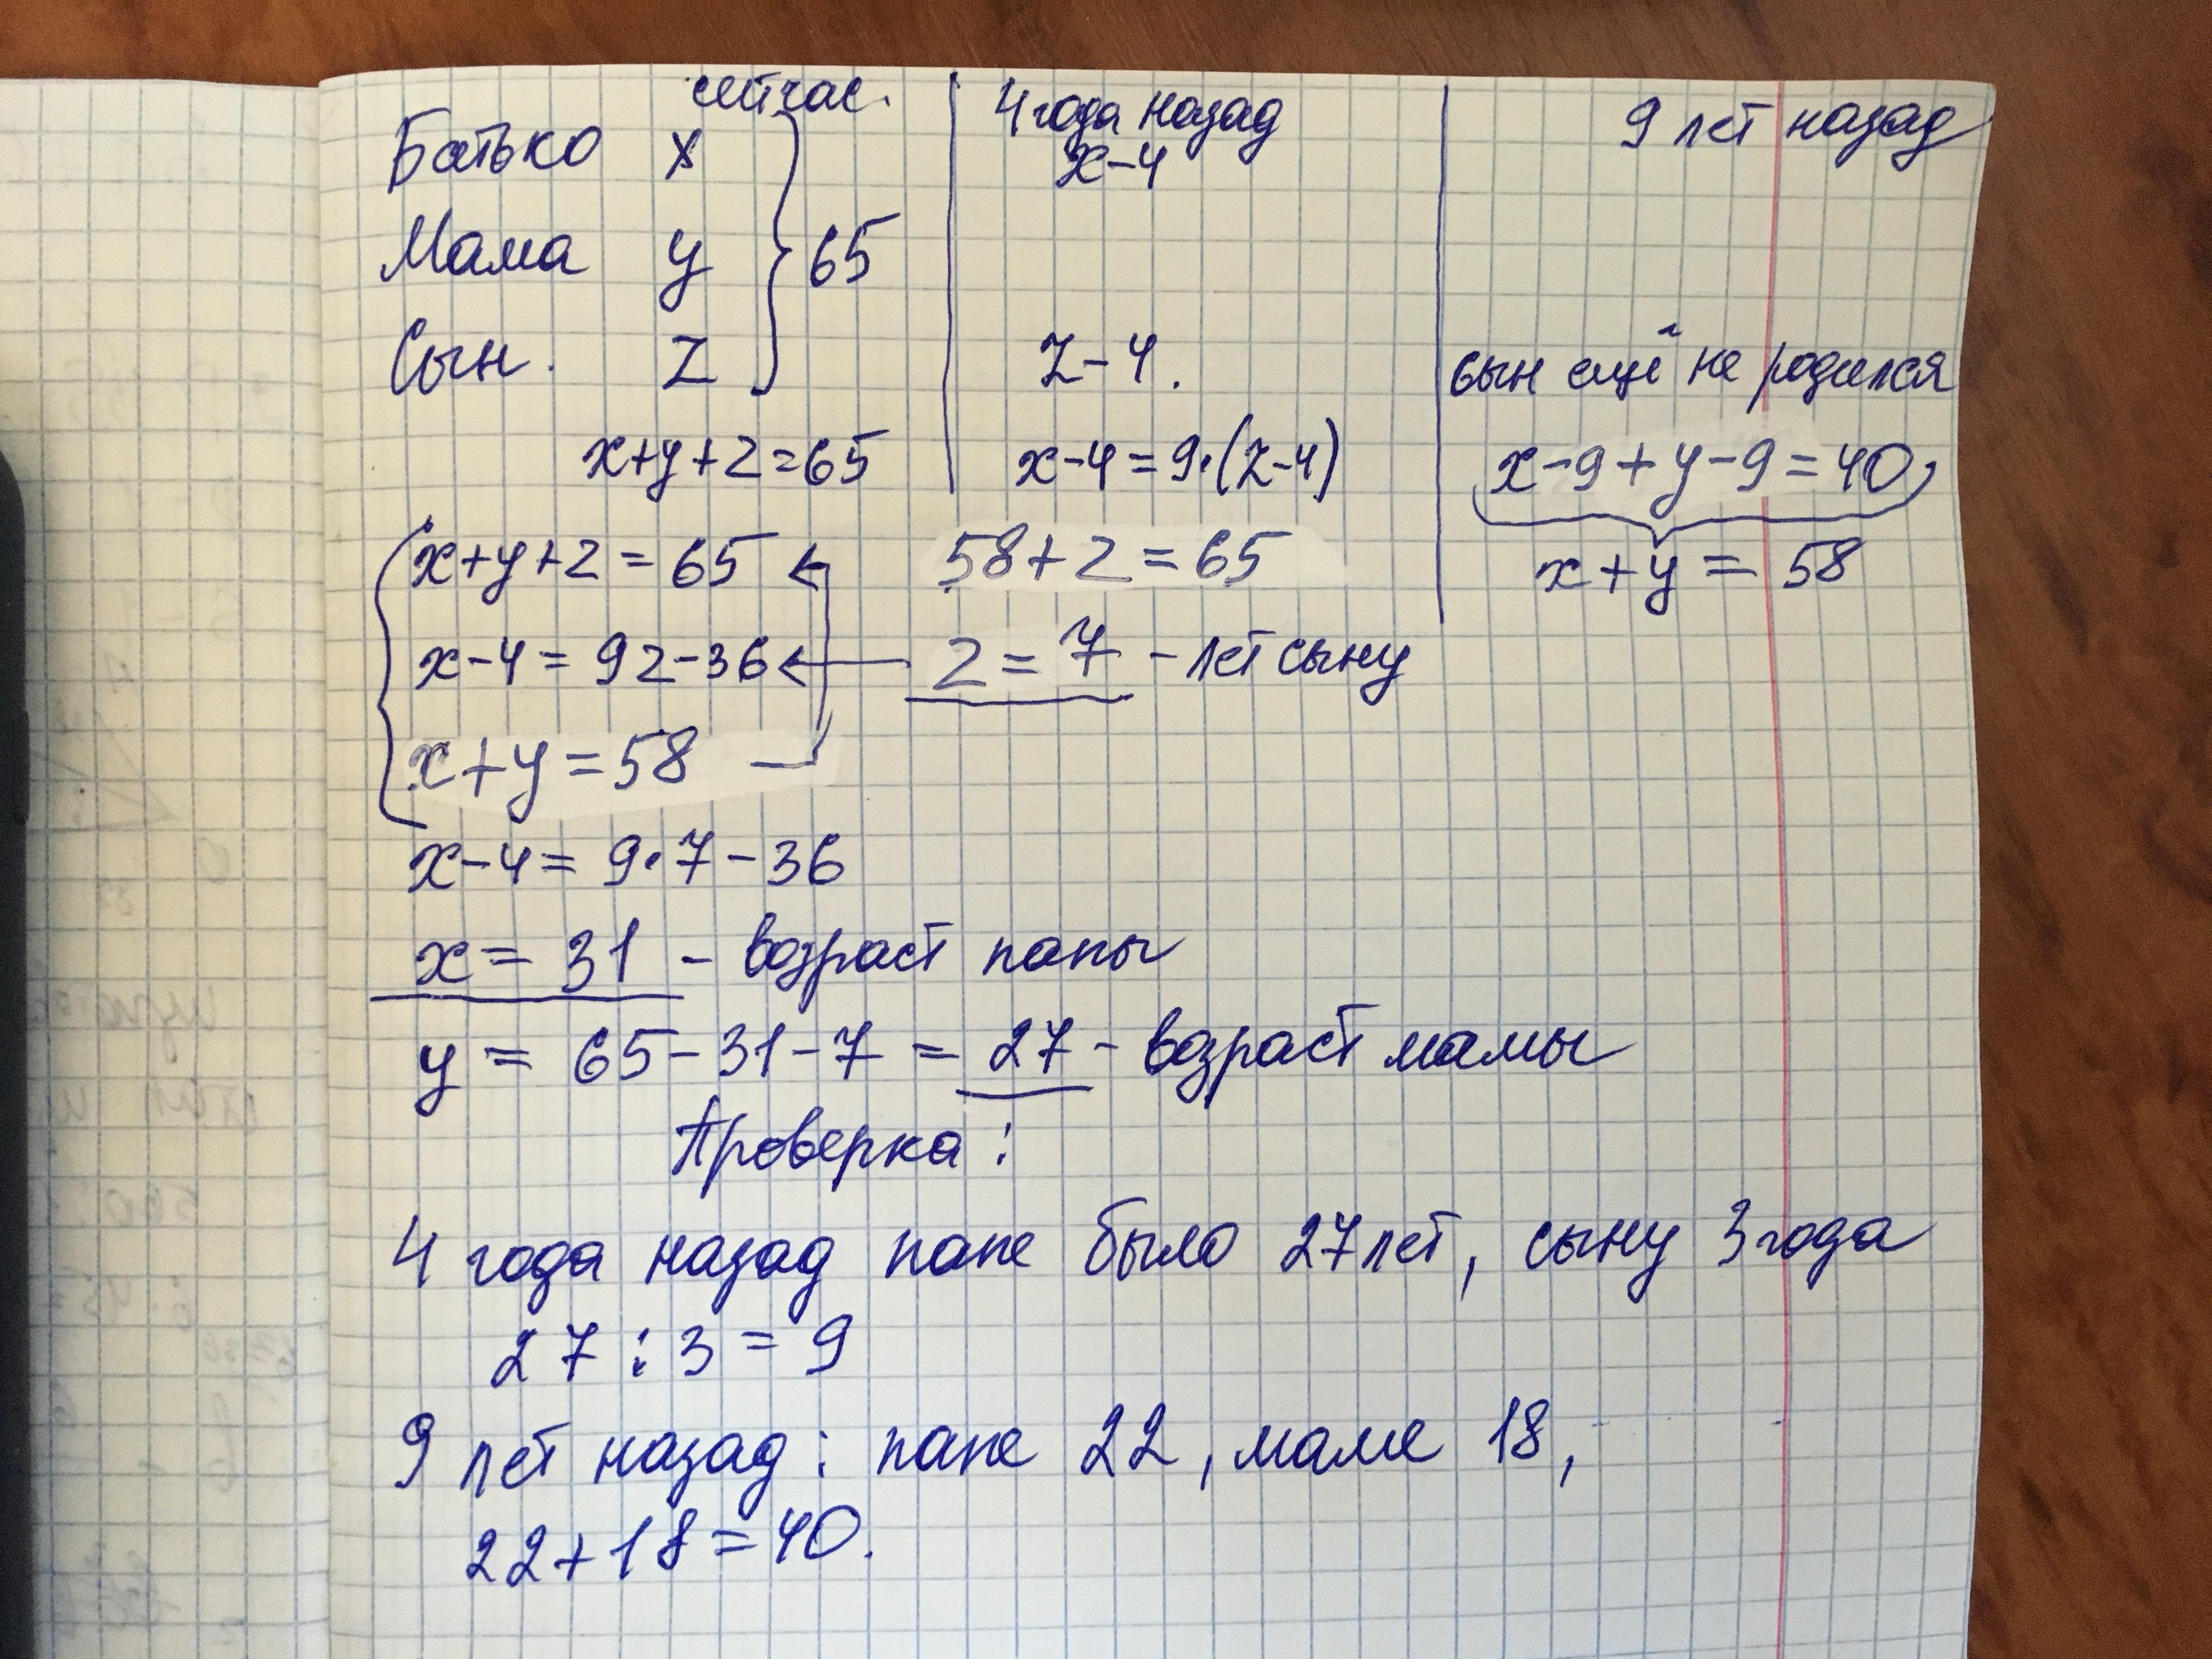 сейчас.
4 года назад
9 лет назад
Батько x
x-4
Мама y } 65
Сын. z
z-4.
сын ещё не родился
x+y+z=65
x-4=9·(z-4)
x-9+y-9=40
x+y+z=65
58+z=65
x+y=58
x-4=9z-36
z=7 - лет сыну
x+y=58
x-4=9·7-36
x=31 - возраст папы
y=65-31-7=27 - возраст мамы
Проверка:
4 года назад папе было 27 лет, сыну 3 года
27:3=9
9 лет назад: папе 22, маме 18,
22+18=40.